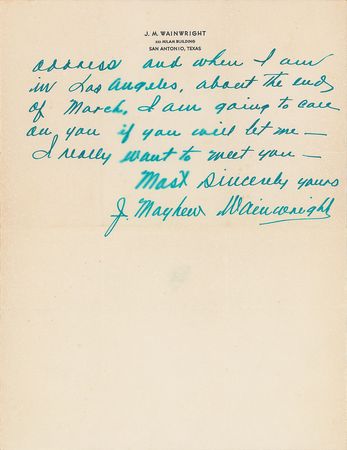 J. M. WAINWRIGHT
MILAM BUILDING
SAN ANTONIO, TEXAS
address and when I am
in Los Angeles, about the end
of March, I am going to call
on you if you will let me —
I really want to meet you —
Most Sincerely yours
J. Mayhew Wainwright